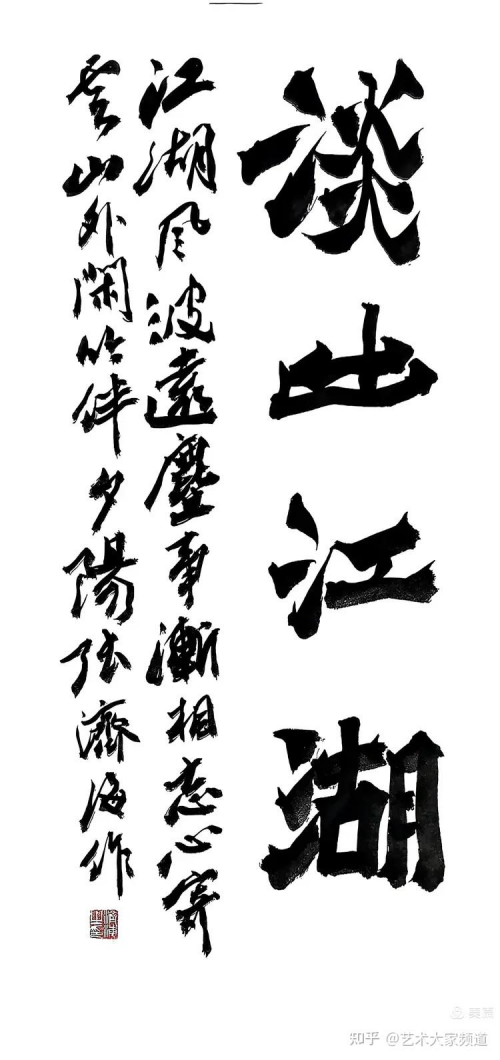 淡出江湖
江湖风波遠塵事漸相忘心寄
雲山外閑吟伴夕陽张濟海作
知乎 @艺术大家频道